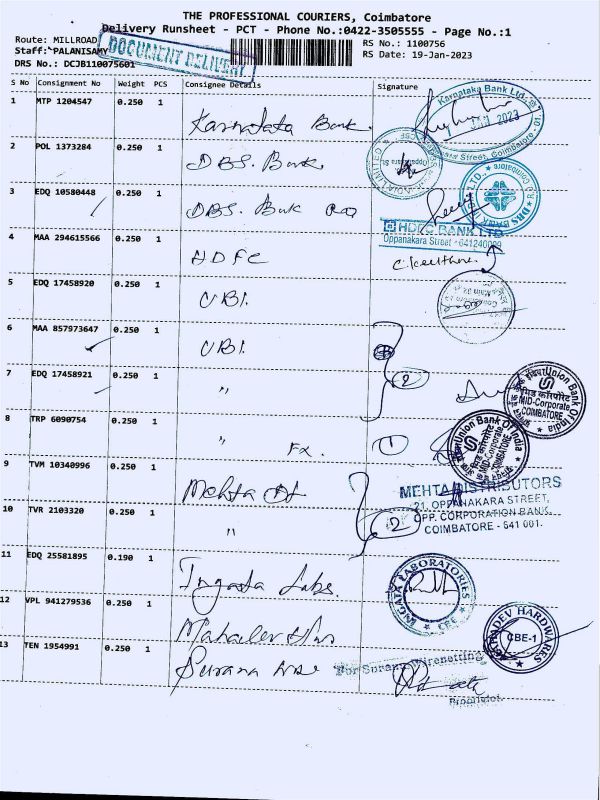 THE PROFESSIONAL COURIERS, Coimbatore
Delivery Runsheet - PCT - Phone No.:0422-3505555 - Page No.:1
Route: MILLROAD
RS No.: 1100756
Staff: PALANISAMY
RS Date: 19-Jan-2023
DOCUMENT DELIVERY
DRS No.: DCJB110075601
S No Consignment No Weight PCS Consignee Details Signature
1 MTP 1204547 0.250 1 Karnataka Bank
Karnataka Bank Ltd.
JAN 2023
Street, Coimbatore - 01.
2 POL 1373284 0.250 1 DBS. Bank
Oppanakara St.
3 EDQ 10580448 0.250 1 DBS. Bank
HDFC BANK LTD
Oppanakara Street - 641240009
4 MAA 294615566 0.250 1 HDFC
5 EDQ 17458920 0.250 1 UBI.
6 MAA 857973647 0.250 1 UBI.
7 EDQ 17458921 0.250 1 "
2
Union Bank Of India
MID-Corporate
COIMBATORE
8 TRP 6090754 0.250 1 " Fx. 1
Union Bank Of India
MID-Corporate
COIMBATORE
9 TVM 10340996 0.250 1 Mehta
MEHTA DISTRIBUTORS
OPPANAKARA STREET,
OPP. CORPORATION BANK,
COIMBATORE - 641 001.
10 TVR 2103320 0.250 1 "
2
11 EDQ 25581895 0.190 1 Ingata Labs.
INGATA LABORATORIES
CBE
12 VPL 941279536 0.250 1
HARDWARES
CBE-1
13 TEN 1954991 0.250 1 Surana
For Surana Wirenetting
Proprietor